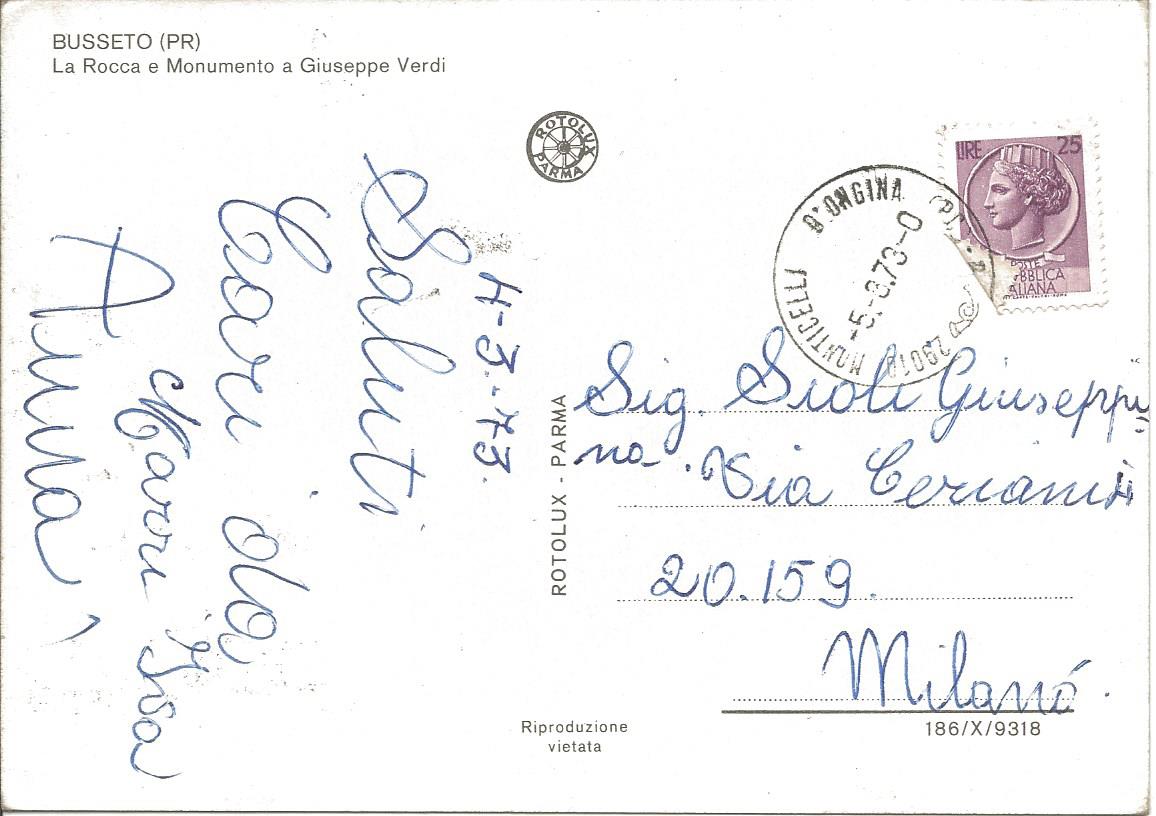 BUSSETO (PR)
La Rocca e Monumento a Giuseppe Verdi
ROTOLUX
PARMA
LIRE 25
POSTE
ALIANA
29010 MONTICELLI D'ONGINA (PC)
-5.-3.73-0
4-3-73.
Saluti
Cari da
Marri Isa
Anna
ROTOLUX - PARMA
Sig. Sioli Giuseppi
na. Via Ceriani
20.159.
Milano.
Riproduzione
vietata
186/X/9318